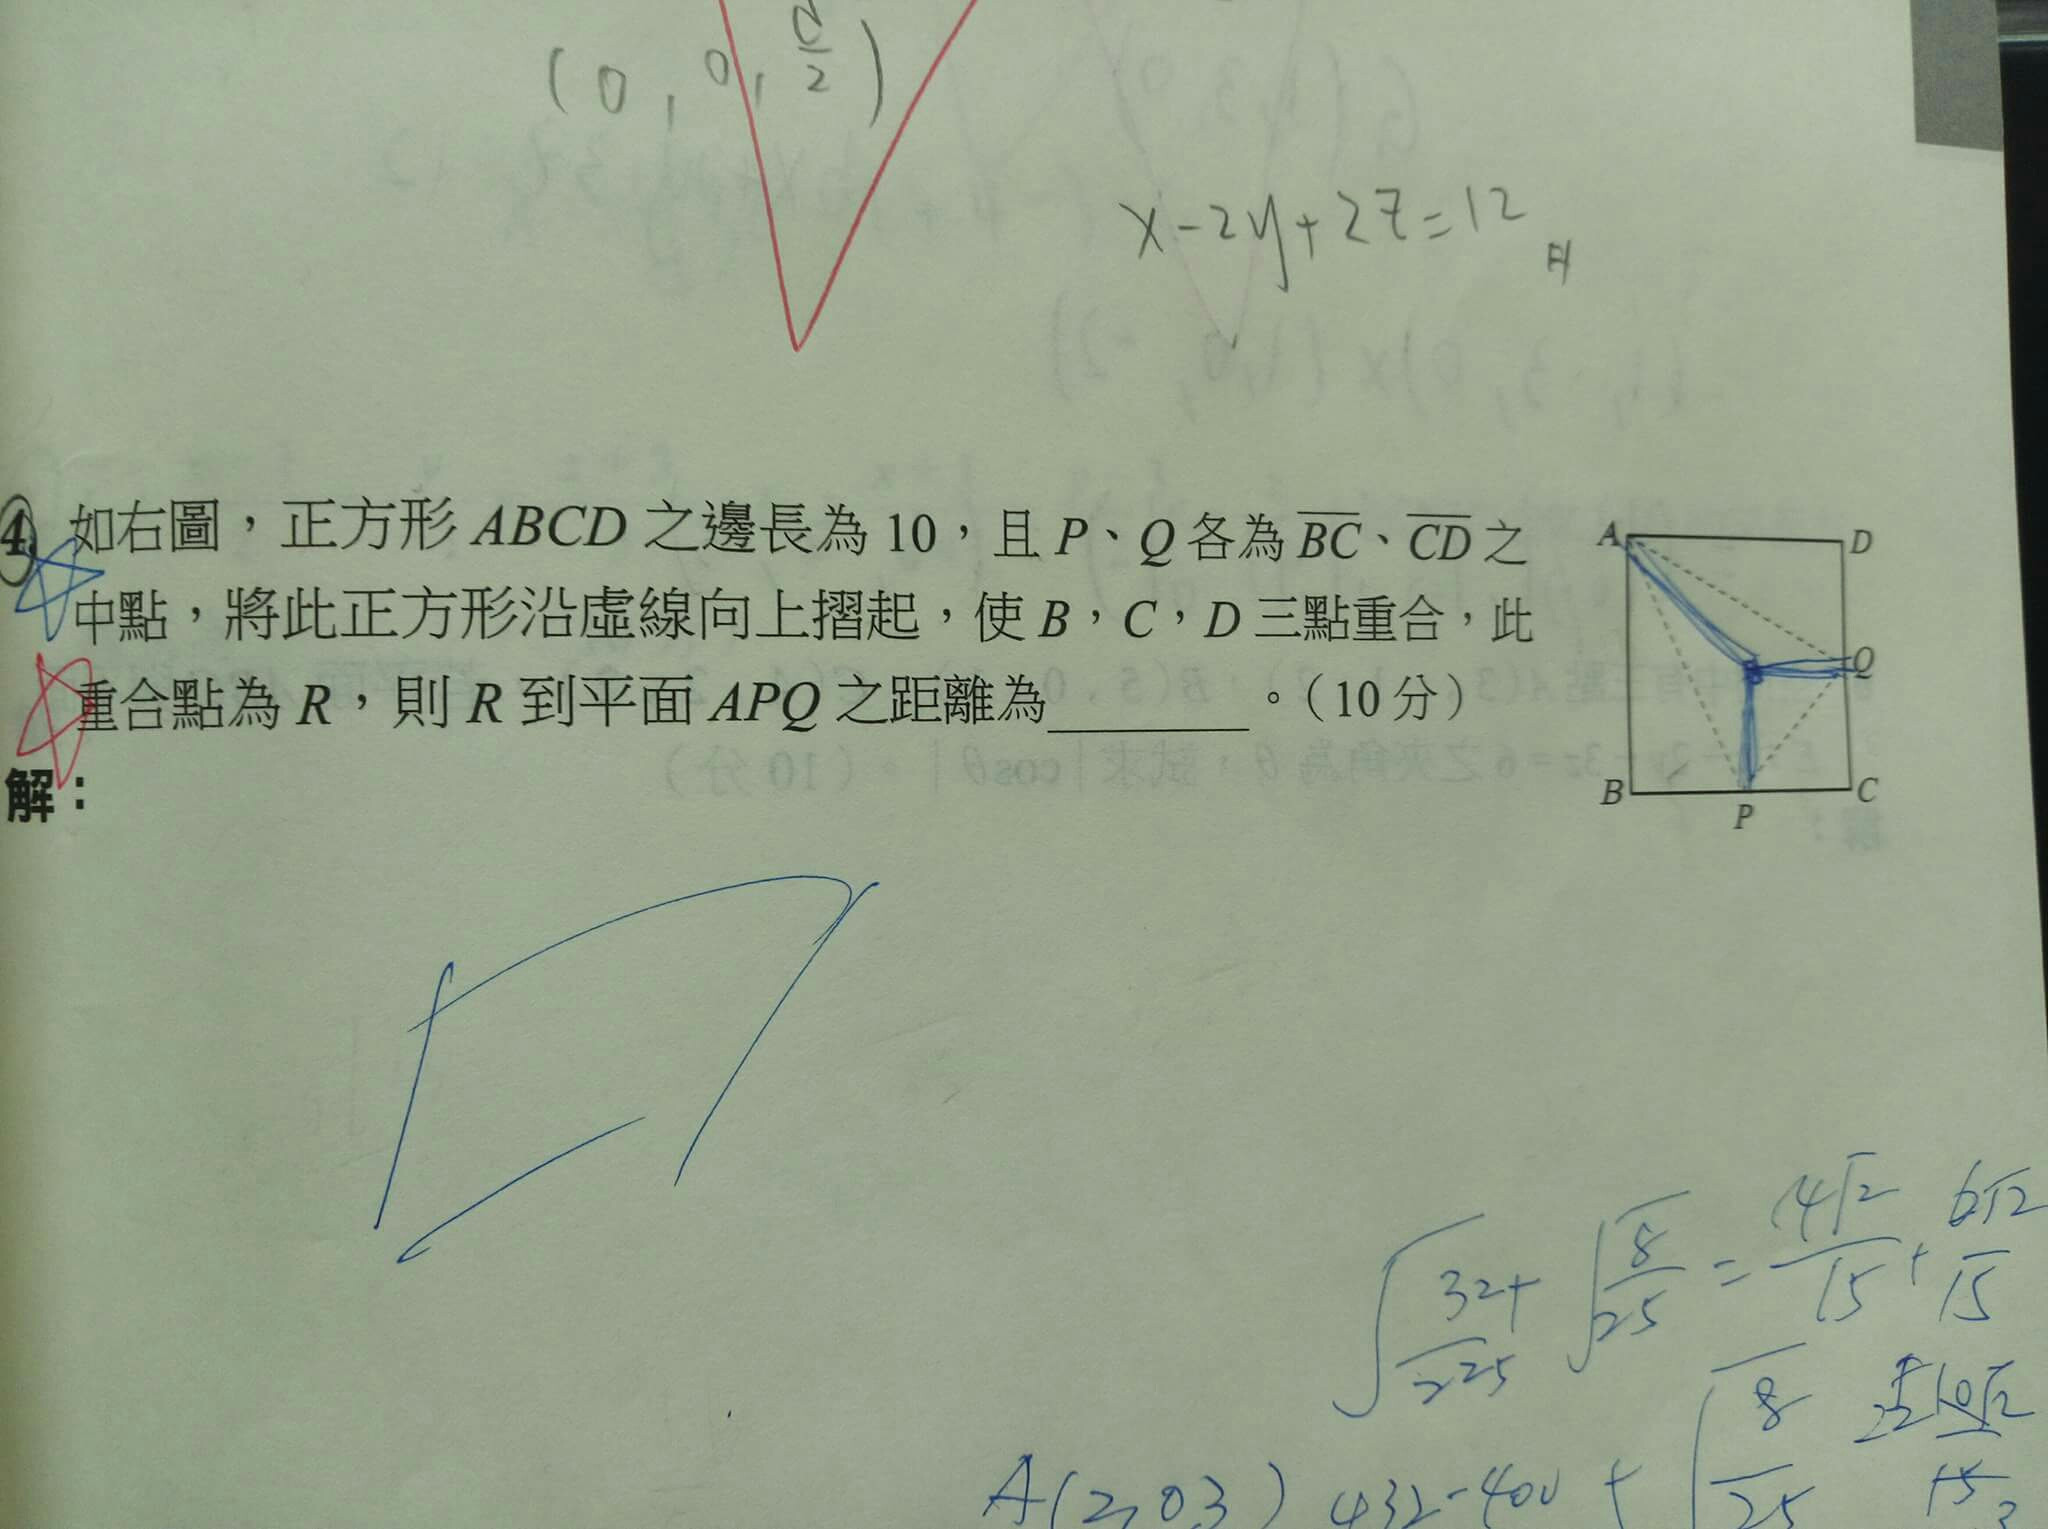 (0, 0, d/2)
x-2y+2z=12
4. 如右圖，正方形 ABCD 之邊長為 10，且 P、Q 各為 BC、CD 之
中點，將此正方形沿虛線向上摺起，使 B，C，D 三點重合，此
重合點為 R，則 R 到平面 APQ 之距離為______。（10 分）
A D
Q
B P C
解：
√32/225 + √8/25 = 4√2/15 + 6√2/15
√8/25 10√2/15
A(2,0,3) 432-400 +